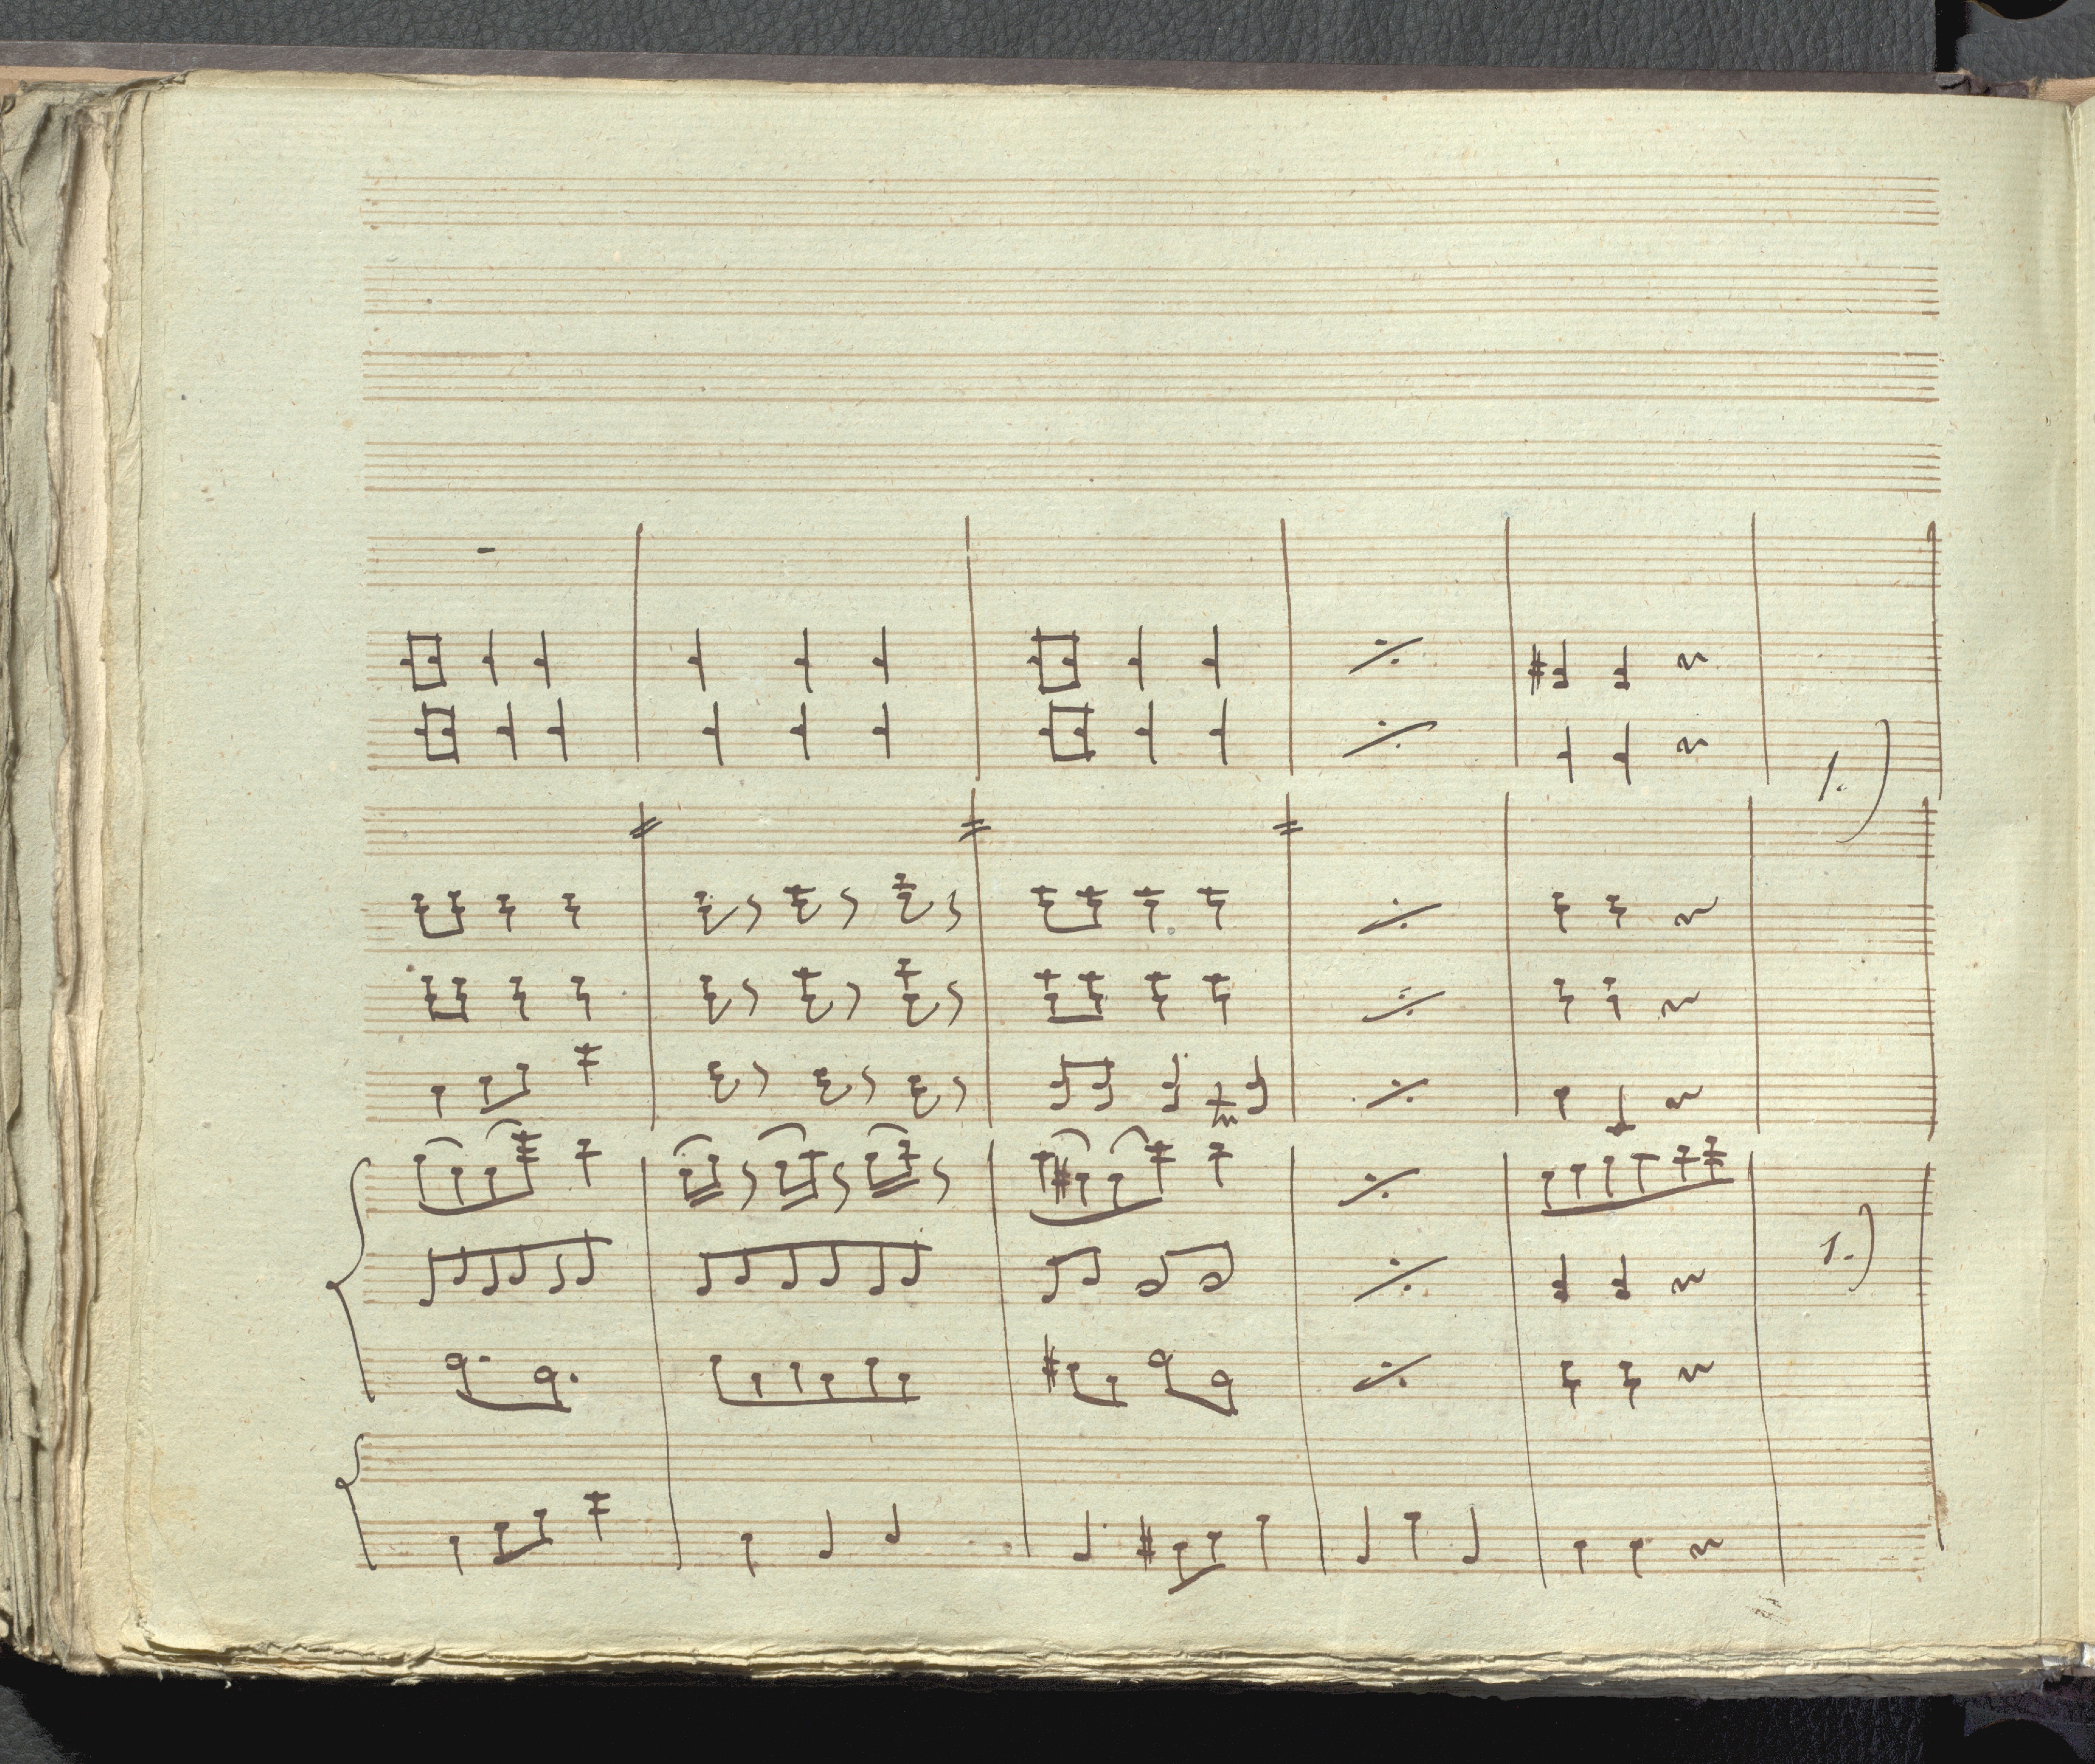 1.)
1.)